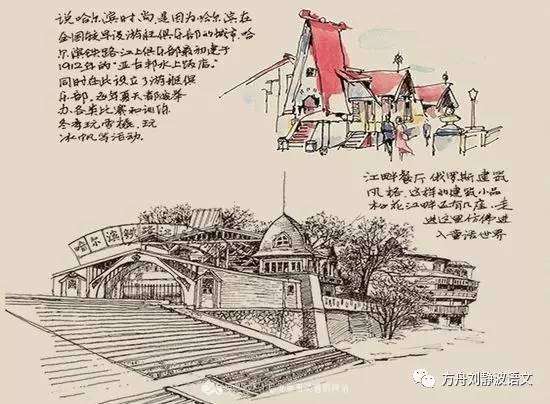 说哈尔滨时尚,是因为哈尔滨在
全国较早设游艇俱乐部的城市.哈
尔滨铁路江上俱乐部最初建于
1912年的"亚古邦水上饭店."
同时在此设立了游艇俱
乐部,每年夏天都举
办各类比赛和训练
冬季玩雪橇、玩
冰帆等活动.
江畔餐厅 俄罗斯建筑
风格,这样的建筑小品
松花江畔还有几座,走
进这里仿佛进
入童话世界
哈尔滨铁路江上
方舟刘静波语文